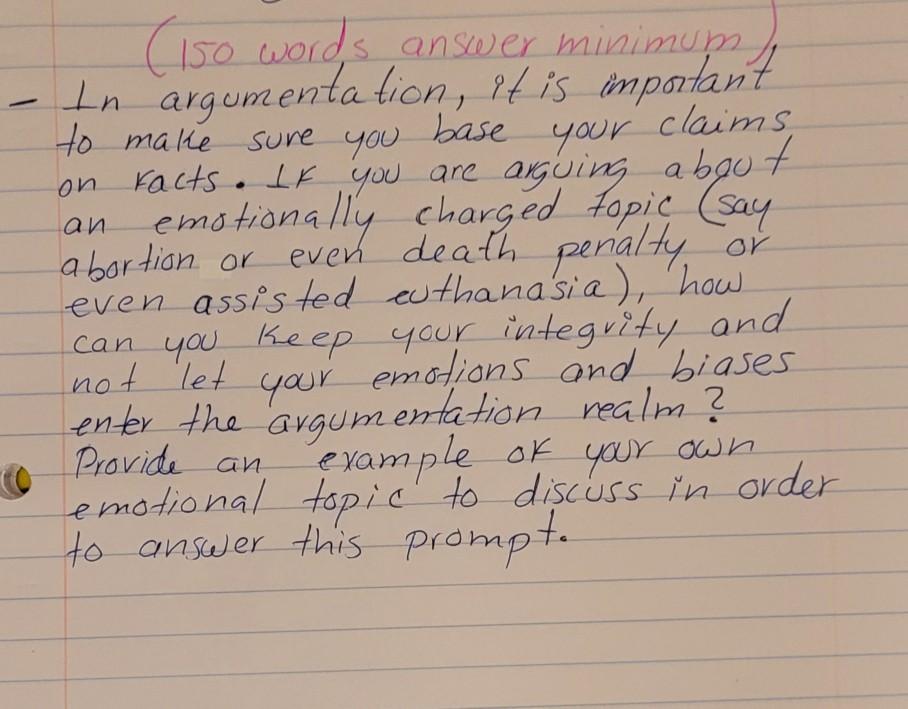 (150 words answer minimum)
- In argumentation, it is important
to make sure you base your claims
on facts. If you are arguing about
an emotionally charged topic (say
abortion or even death penalty or
even assisted euthanasia), how
can you keep your integrity and
not let your emotions and biases
enter the argumentation realm?
Provide an example of your own
emotional topic to discuss in order
to answer this prompt.